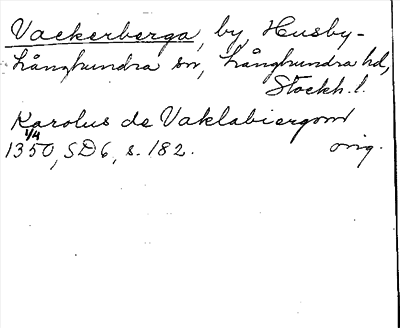 Vackerberga, by, Husby-
Långhundra sn, Långhundra hd,
Stockh. l.
Karolus de Vaklabiergom
1/4
1350, SD 6, s. 182. orig.